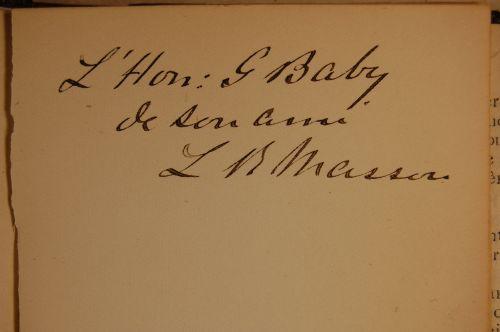 L'Hon: G Baby
de son ami
L R Masson